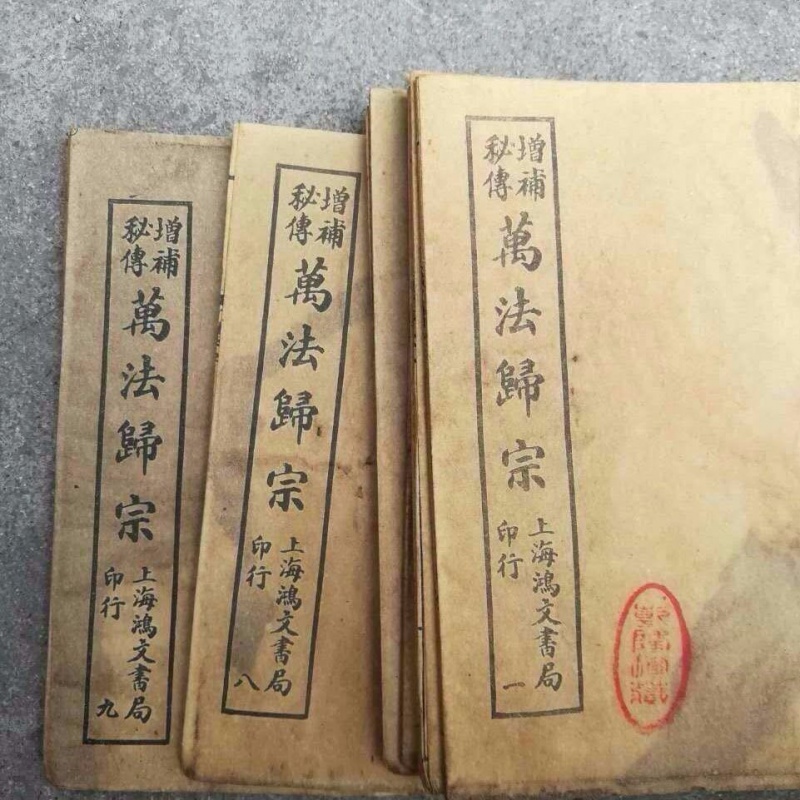 增補
秘傳
萬法歸宗
上海鴻文書局
印行
一
增補
秘傳
萬法歸宗
上海鴻文書局
印行
八
增補
秘傳
萬法歸宗
上海鴻文書局
印行
九